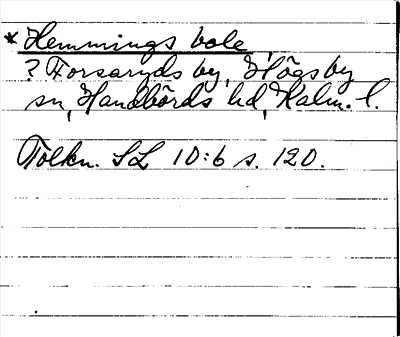 * Hemmings bole
? Forsaryds by, Högsby
sn, Handbörds hd, Kalm. l.
Tolkn. SL 10:6 s. 120.